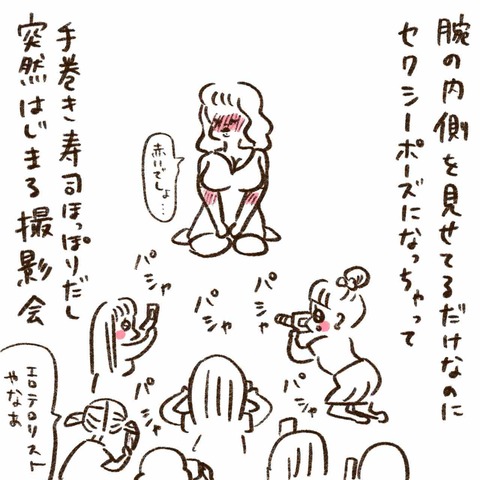 腕の内側を見せてるだけなのに
セクシーポーズになっちゃって
赤いでしょ…
手巻き寿司ほっぽりだし
突然はじまる撮影会
パシャ
パシャ
パシャ
パシャ
パシャ
エロテロリスト
やなあ